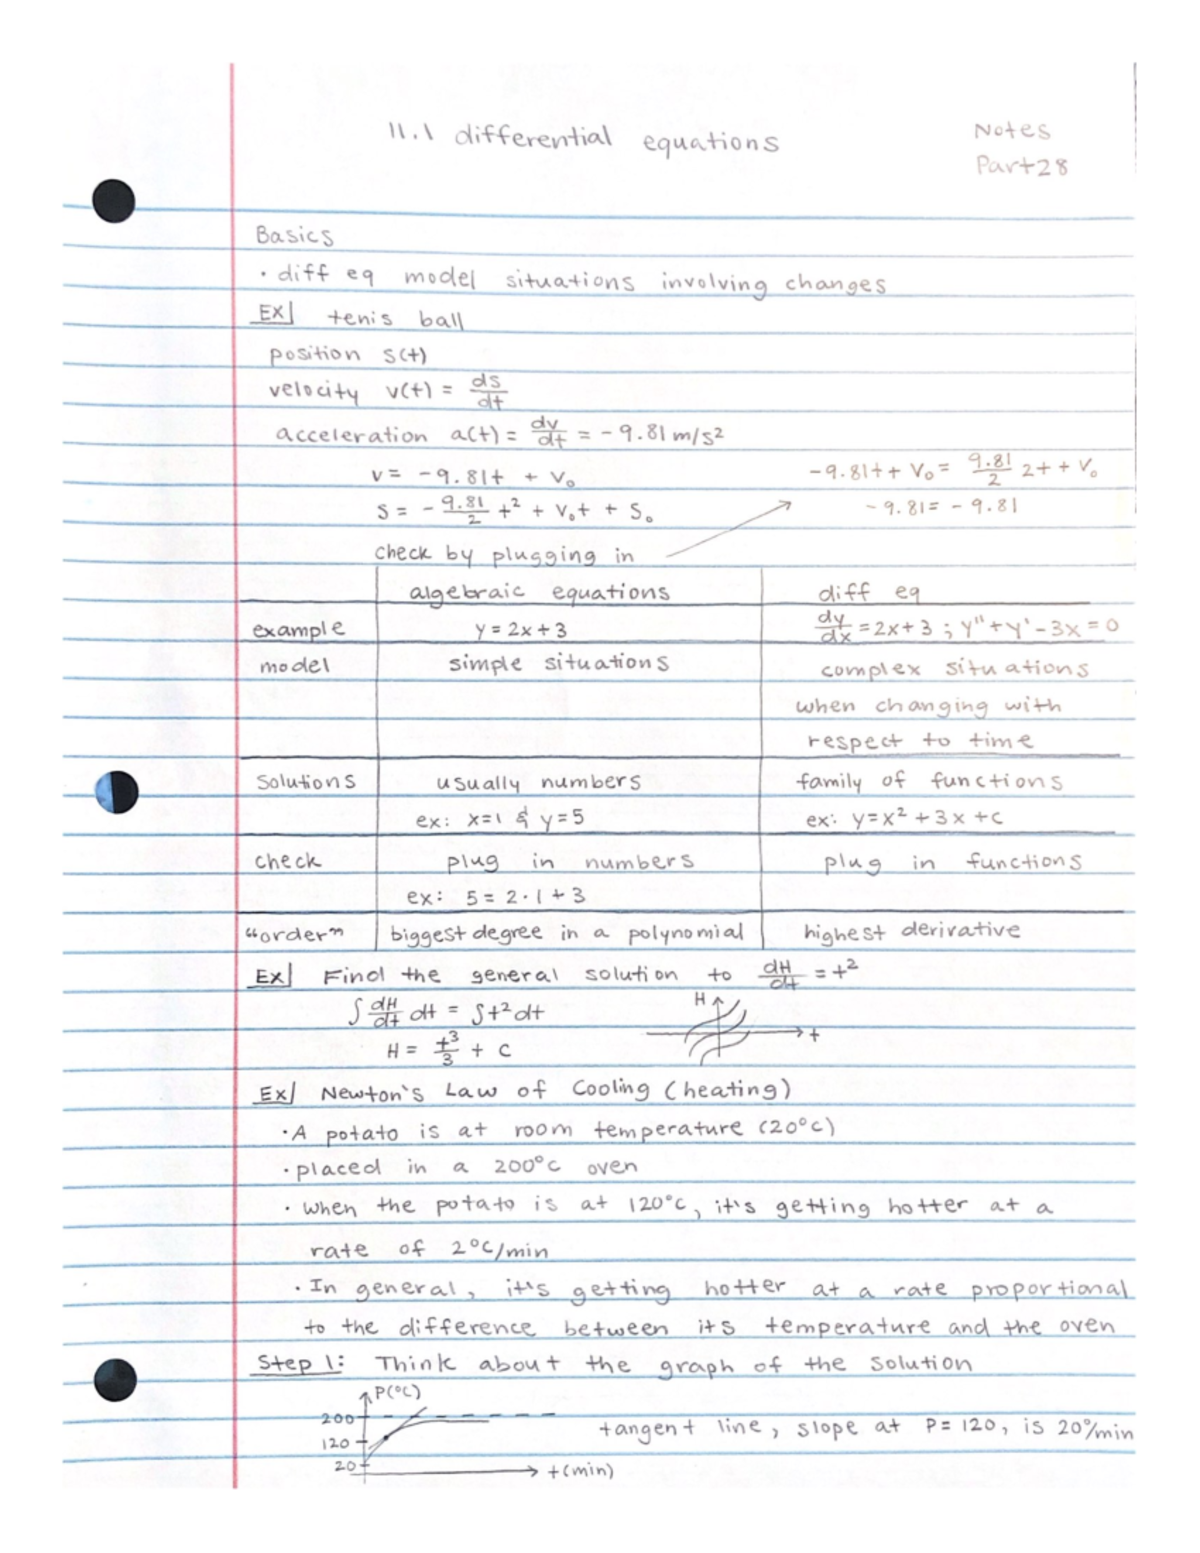 11.1 differential equations
Notes
Part 28
Basics
· diff eq model situations involving changes
Ex| tenis ball
position s(t)
velocity v(t) = ds/dt
acceleration a(t) = dv/dt = -9.81 m/s²
v = -9.81t + V₀
-9.81t + V₀ = 9.81/2 2t + V₀
s = - 9.81/2 t² + V₀t + S₀
-9.81 = -9.81
check by plugging in
algebraic equations diff eq
example y = 2x+3 dy/dx = 2x+3 ; y"+y'-3x = 0
model simple situations complex situations
when changing with
respect to time
solutions usually numbers family of functions
ex: x=1 & y=5 ex: y=x²+3x+c
check plug in numbers plug in functions
ex: 5 = 2·1+3
"order" biggest degree in a polynomial highest derivative
Ex| Find the general solution to dH/dt = t²
∫ dH/dt dt = ∫t²dt
H = t³/3 + c
H
t
Ex| Newton's Law of Cooling (heating)
· A potato is at room temperature (20°c)
· placed in a 200°c oven
· when the potato is at 120°c, it's getting hotter at a
rate of 2°c/min
· In general, it's getting hotter at a rate proportional
to the difference between its temperature and the oven
Step 1: Think about the graph of the solution
P(°C)
200
120
20
t(min)
tangent line, slope at P=120, is 20%min